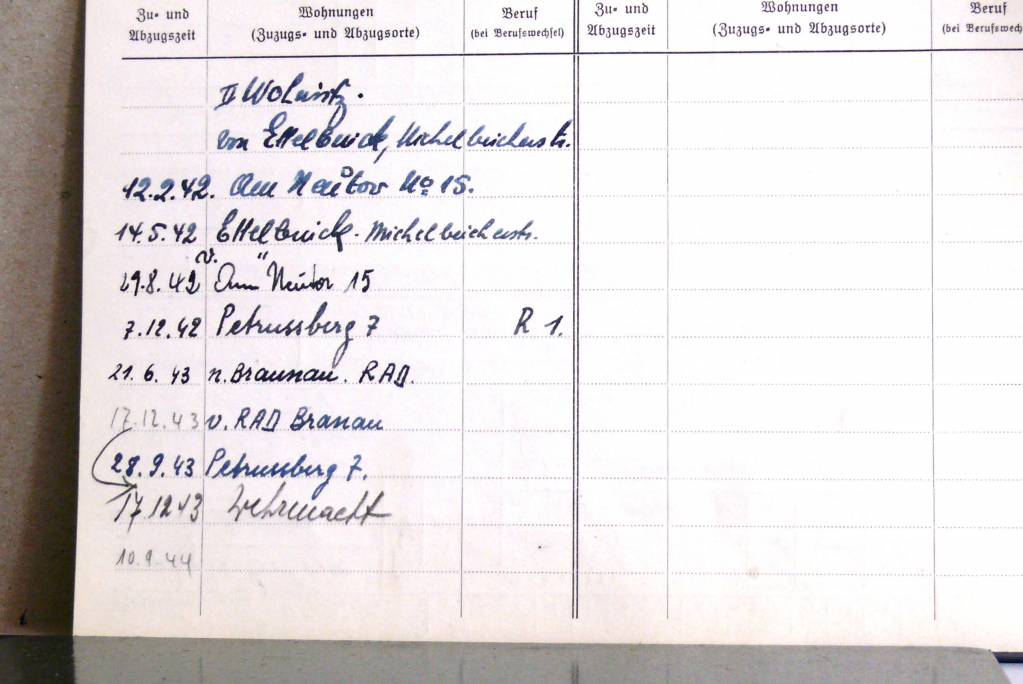 Zu- und Wohnungen Beruf Zu- und Wohnungen Beruf
Abzugszeit (Zuzugs- und Abzugsorte) (bei Berufswechsel) Abzugszeit (Zuzugs- und Abzugsorte) (bei Berufswech
II Wohnsitz.
von Ettelbrück, Michelbucherstr.
12.2.42. Am Neutor No 15.
14.5.42 Ettelbrück. Michelbucherstr.
v. "
29.8.42 Am Neutor 15
7.12.42 Petrussberg 7 R 1.
21.6.43 n. Braunau. RAD.
17.12.43 v. RAD Branau
28.9.43 Petrussberg 7.
17.12 43 Wehrmacht
10.9.44